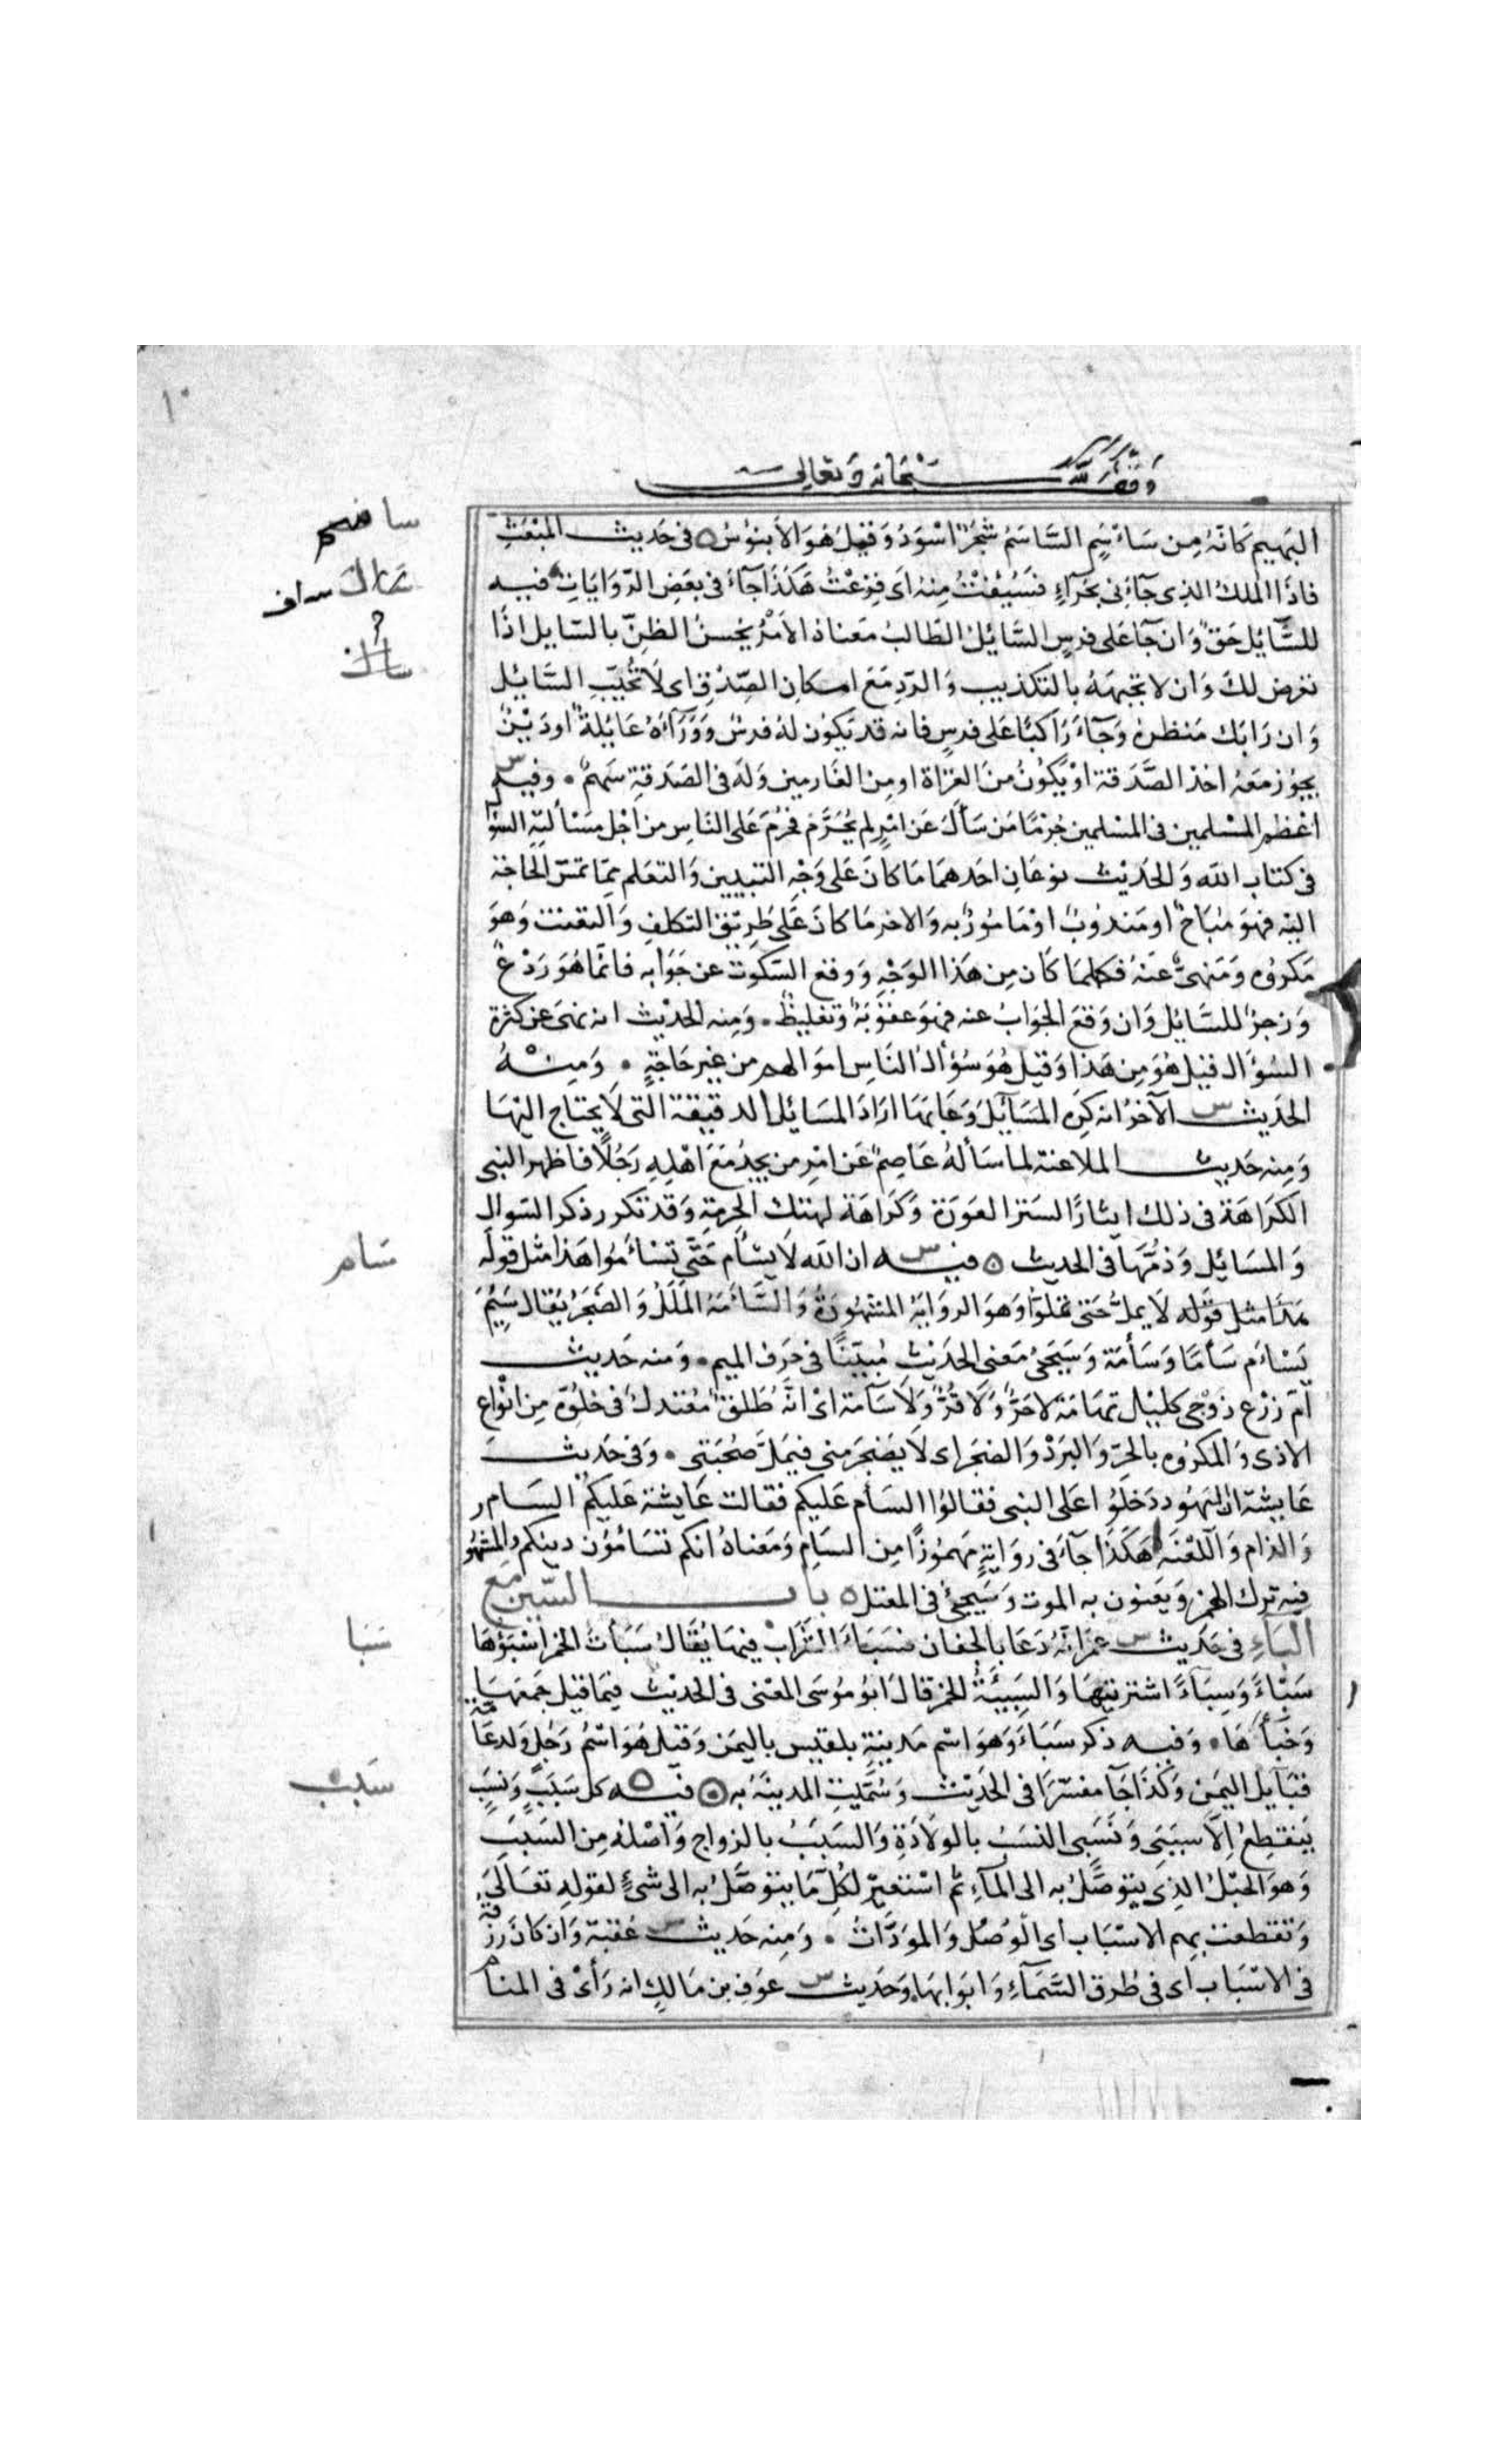 وقف لله سبحانه وتعالى
البهيم كانه من ساسم الساسم شجر اسود وقيل هو الابنوس في حديث المبعث
فاذا الملك الذي جاءني بحراء فسئفت منه اى فزعت هكذا جاء في بعض الروايات فيه
للسائل حق وان جآ على فرس السائل الطالب معناه الامر بحسن الظن بالسايل اذا
تعرض لك وان لا تجبهه بالتكذيب والرد مع امكان الصدق اى لا تخيب السائل
وان رابك منظره وجآء راكبا على فرس فانه قد يكون له فرس ووراءه عايلة او دين
يجوز معه اخذ الصدقة او يكون من الغزاة او من الغارمين وله في الصدقة سهم وفيه
اعظم المسلمين في المسلمين جرما من سأل عن امر لم يحرم فحرم على الناس من اجل مسألته السوا
في كتاب الله والحديث نوعان احدهما ما كان على وجه التبيين والتعلم مما تمس الحاجة
اليه فهو مباح او مندوب او مامور به والاخر ما كان على طريق التكلف والتعنت وهو
مكروه ومنهى عنه فكلما كان من هذا الوجه ووقع السكوت عن جوابه فانما هو ردع
وزجر للسائل وان وقع الجواب عنه فهو عقوبة وتغليظ ومنه الحديث انه نهى عن كثرة
السؤال قيل هو من هذا وقيل هو سؤال الناس اموالهم من غير حاجة ومنه
الحديث الآخر انه كره المسآيل وعابها اراد المسائل الدقيقة التي لا يحتاج اليها
ومنه حديث الملاعنة لما سأله عاصم عن امر من يجد مع اهله رجلا فاظهر النبى
الكراهة في ذلك ايثارا لستر العورة وكراهة لهتك الحرمة وقد تكرر ذكر السوال
والمسائل وذمها في الحديث فيه ان الله لا يسأم حتى تسأموا هذا مثل قوله
هذا مثل قوله لا يمل حتى تملوا وهو الرواية المشهورة والسأمة الملل والضجر يقال سئم
يسأم سأما وسأمة وسيجئ معنى الحديث مبينا في حرف الميم ومنه حديث
ام زرع زوجى كليل تهامة لا حر ولا قر ولا سآمة اى انه طلق معتدل في خلوه من انواع
الاذى والمكروه بالحر والبرد والضجر اى لا يضجر منى فيمل صحبتى وفي حديث
عايشة ان اليهود دخلوا على النبى فقالوا السأم عليكم فقالت عايشة عليكم السام
والذام واللعنة هكذا جآء في رواية مهموزا من السام ومعناه انكم تسأمون دينكم والمشهو
فيه ترك الهمز ويعنون به الموت وسيجئ في المعتل باب السين مع
الباء في حديث عمر انه دعا بالجفان فسبأ الشراب فيها يقال سبأت الخمر اسبؤها
سبأ وسباء اشتريتها والسبيئة الخمر قال ابو موسى المعنى في الحديث فيما قيل جمعها
وخبأها وفيه ذكر سبأ وهو اسم مدينة بلقيس باليمن وقيل هو اسم رجل ولد عامة
قبآيل اليمن وكذا جآ مفسرا في الحديث وسميت المدينة به فيه كل سبب ونسب
ينقطع الا سببى ونسبى النسب بالولادة والسبب بالزواج واصله من السبب
وهو الحبل الذى يتوصل به الى المآء ثم استعير لكل ما يتوصل به الى شئ لقوله تعالى
وتقطعت بهم الاسباب اى الوصل والمودات ومنه حديث عقبة وان كان رزقه
في الاسباب اى في طرق السمآء وابوابها وحديث عوف بن مالك انه رأى في المنام
ساسم
ساف
سال
سام
سبا
سبب
١٠